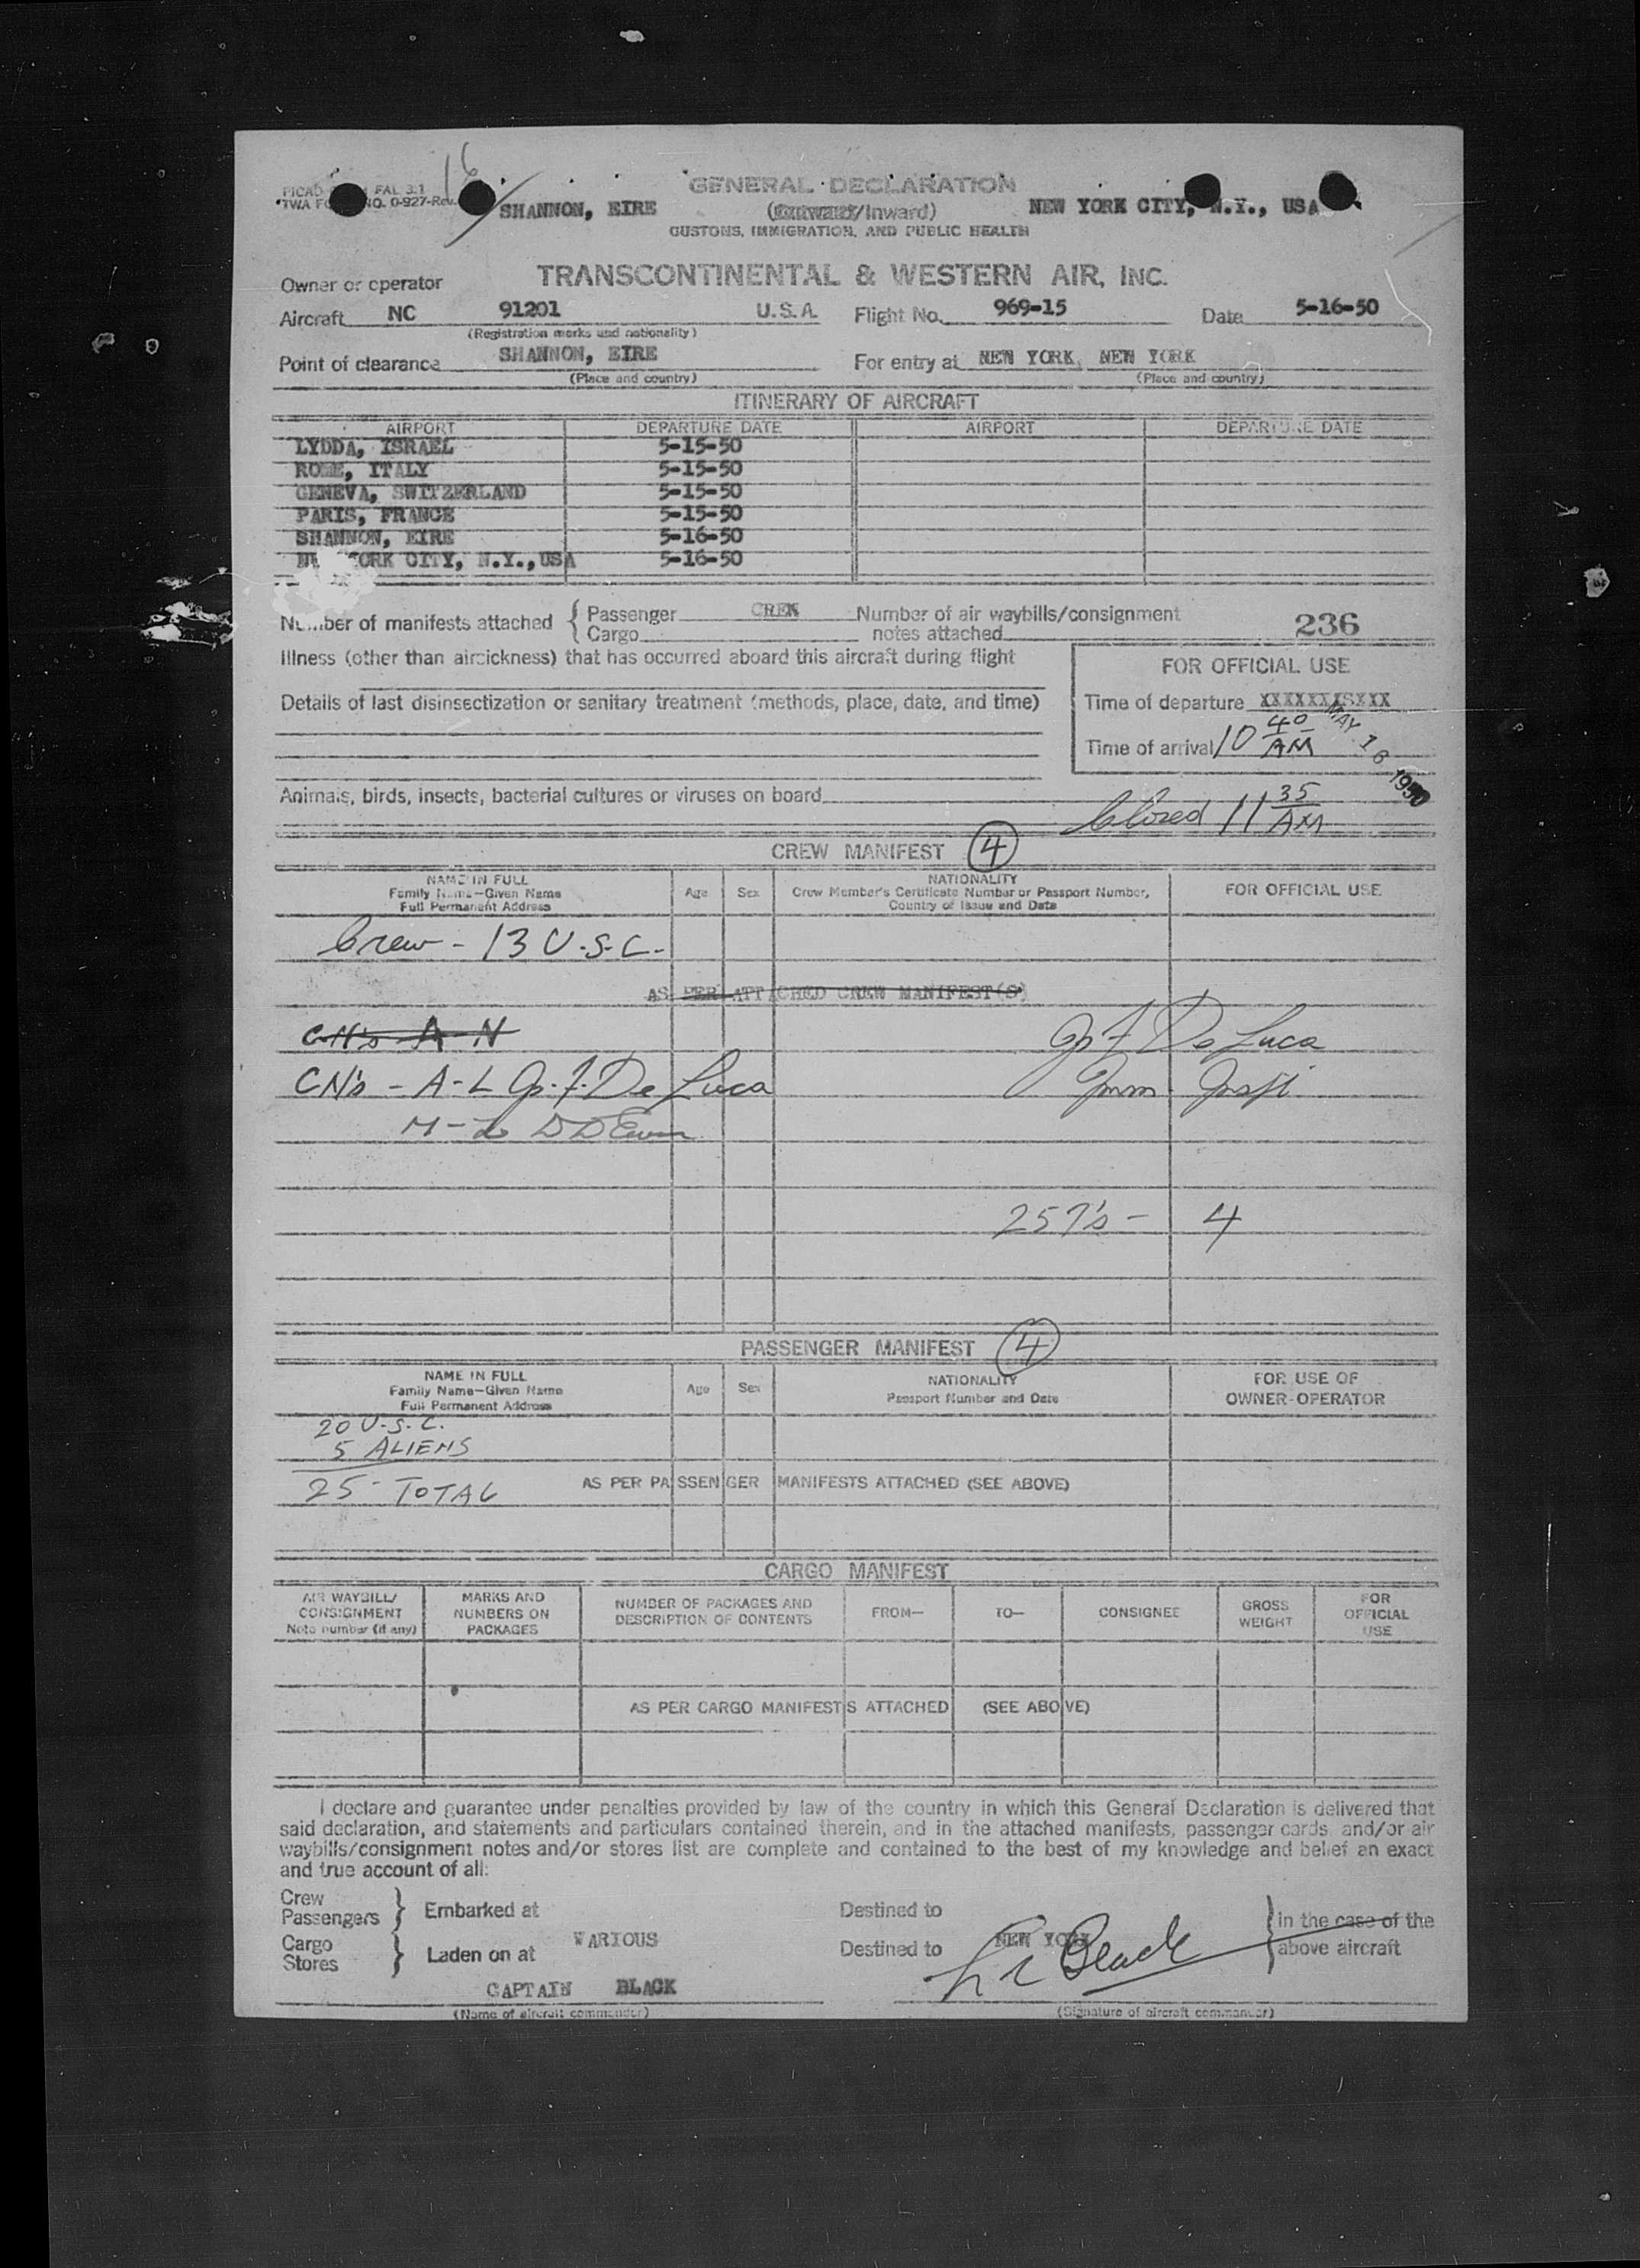 16
PICAO FAL 3.1
TWA FO NO. 0-927-Rev.
GENERAL DECLARATION
SHANNON, EIRE (Outward/Inward) NEW YORK CITY, N.Y., USA
CUSTOMS, IMMIGRATION, AND PUBLIC HEALTH
Owner or operator TRANSCONTINENTAL & WESTERN AIR, INC.
Aircraft NC 91201 U.S.A. Flight No. 969-15 Date 5-16-50
(Registration marks and nationality)
Point of clearance SHANNON, EIRE For entry at NEW YORK, NEW YORK
(Place and country) (Place and country)
ITINERARY OF AIRCRAFT
AIRPORT DEPARTURE DATE AIRPORT DEPARTURE DATE
LYDDA, ISRAEL 5-15-50
ROME, ITALY 5-15-50
GENEVA, SWITZERLAND 5-15-50
PARIS, FRANCE 5-15-50
SHANNON, EIRE 5-16-50
NEW YORK CITY, N.Y., USA 5-16-50
Number of manifests attached { Passenger CREW Number of air waybills/consignment 236
Cargo notes attached
Illness (other than airsickness) that has occurred aboard this aircraft during flight
FOR OFFICIAL USE
Details of last disinsectization or sanitary treatment (methods, place, date, and time)
Time of departure XXXXXXXSXXX
MAY 16 1950
Time of arrival 10 40 AM
Animals, birds, insects, bacterial cultures or viruses on board
Closed 11 35 AM
CREW MANIFEST 4
NAME IN FULL
Family Name—Given Name
Full Permanent Address
Age Sex
NATIONALITY
Crew Member's Certificate Number or Passport Number,
Country of Issue and Date
FOR OFFICIAL USE
Crew - 13 U.S.C.
AS PER ATTACHED CREW MANIFEST(S)
CN's A-N
De Luca
CN's - A-L De Luca Imm. Insp.
257's - 4
PASSENGER MANIFEST 4
NAME IN FULL
Family Name—Given Name
Full Permanent Address
Age Sex
NATIONALITY
Passport Number and Date
FOR USE OF
OWNER-OPERATOR
20 U.S.C.
5 ALIENS
25 - TOTAL AS PER PASSENGER MANIFESTS ATTACHED (SEE ABOVE)
CARGO MANIFEST
AIR WAYBILL/
CONSIGNMENT
Note number (if any)
MARKS AND
NUMBERS ON
PACKAGES
NUMBER OF PACKAGES AND
DESCRIPTION OF CONTENTS
FROM—
TO—
CONSIGNEE
GROSS
WEIGHT
FOR
OFFICIAL
USE
AS PER CARGO MANIFESTS ATTACHED (SEE ABOVE)
I declare and guarantee under penalties provided by law of the country in which this General Declaration is delivered that
said declaration, and statements and particulars contained therein, and in the attached manifests, passenger cards, and/or air
waybills/consignment notes and/or stores list are complete and contained to the best of my knowledge and belief an exact
and true account of all:
Crew
Passengers } Embarked at Destined to } in the case of the
Cargo
Stores } Laden on at VARIOUS Destined to NEW YORK above aircraft
Black
CAPTAIN BLACK
(Name of aircraft commander) (Signature of aircraft commander)